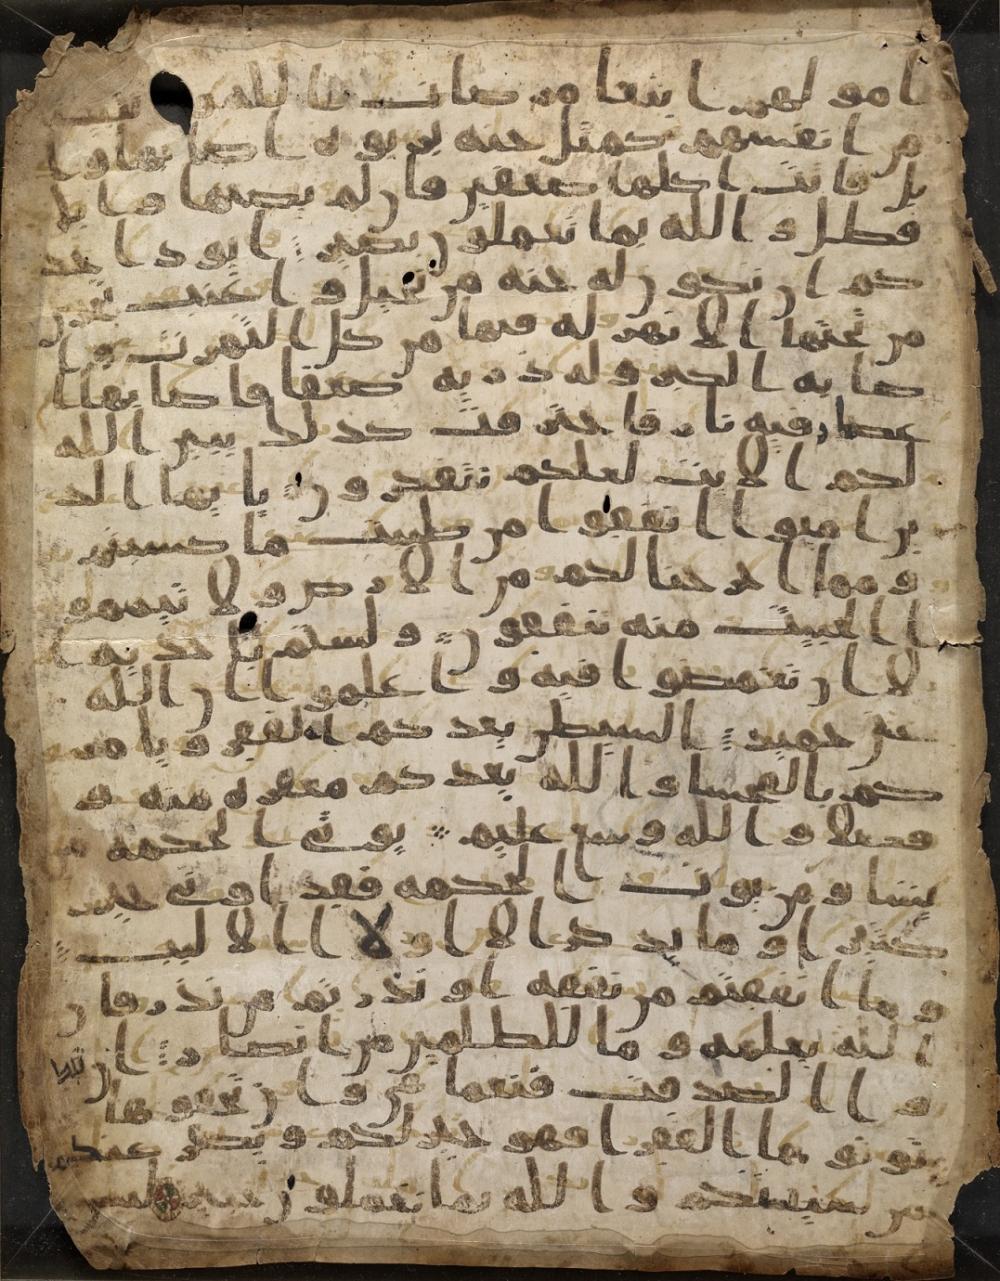 امولهم ابتغا مرضات الله
من انفسهم كمثل جنه بربوه اصابها وا
بل فاتت اكلها ضعفين فان لم يصبها وابل
فطل والله بما تعملون بصير ايود احد
كم ان تكون له جنه من نخيل واعنب تجري
من تحتها الانهر له فيها من كل الثمرت وا
صابه الكبر وله ذريه ضعفا فاصابها ا
عصار فيه نار فاحترقت كذلك يبين الله
لكم الايت لعلكم تتفكرون يايها الذ
ين امنوا انفقوا من طيبت ما كسبتم
ومما اخرجنا لكم من الارض ولا تيممو
ا الخبيث منه تنفقون ولستم باخذيه ا
لا ان تغمضوا فيه واعلموا ان الله
غني حميد الشيطن يعدكم الفقر ويامر
كم بالفحشا والله يعدكم مغفره منه و
فضلا والله وسع عليم يوتي الحكمه
يشا ومن يوت الحكمه فقد اوتي خير
كثيرا وما يذكر الا اولا الالبب
وما انفقتم من نفقه او نذرتم من نذر فان
الله يعلمه وما للظلمين من انصار ان تبد
وا الصدقت فنعما هي وان تخفوها و
توتوها الفقرا فهو خير لكم ويكفر عنكم
من سيتكم والله بما تعملون خبير ليس